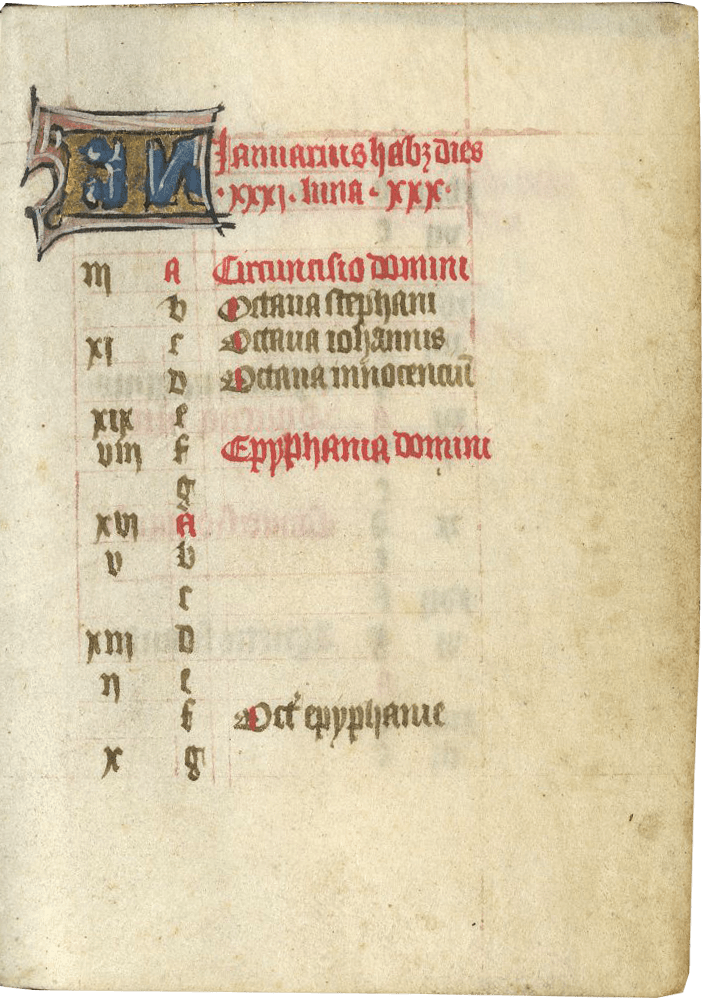 KL Januarius habꝫ dies
·xxxj· luna · xxx·
iij A Circuncisio domini
b Octaua stephani
xj c Octaua iohannis
d Octaua innocenciū
xix e
viij f Epyphania domini
g
xvj A
v b
c
xiij d
ij e
f Oct' epyphanie
x g